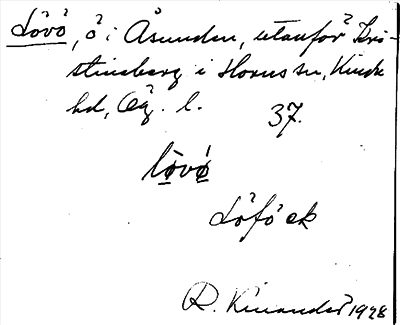 Lövö, ö i Åsunden, utanför Kri-
stineberg i Horns sn, Kinda
hd, Ög. l.
37.
lövö
Löföek
R. Kinander 1928